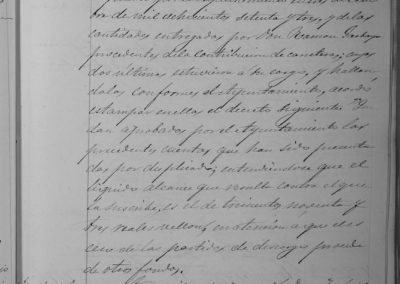 bra de mil ochocientos setenta y tres, y de las
cantidades entregadas por Don Ramon
procedentes de la contribucion de carreteras, cuyas
dos últimas estuvieron a su cargo, y hallan
dolas conformes el Ayuntamiento, acordó
estampar en ellas el decreto siguiente
dan aprobadas por el Ayuntamiento las
precedentes cuentas que han sido presenta
das por duplicado; entendiendose que el
líquido alcance que resulta contra el que
la suscribe, es el de trescientos noventa y
tres reales vellon, en atencion a que el es
ceso de las partidas de descargo procede
de otros fondos.